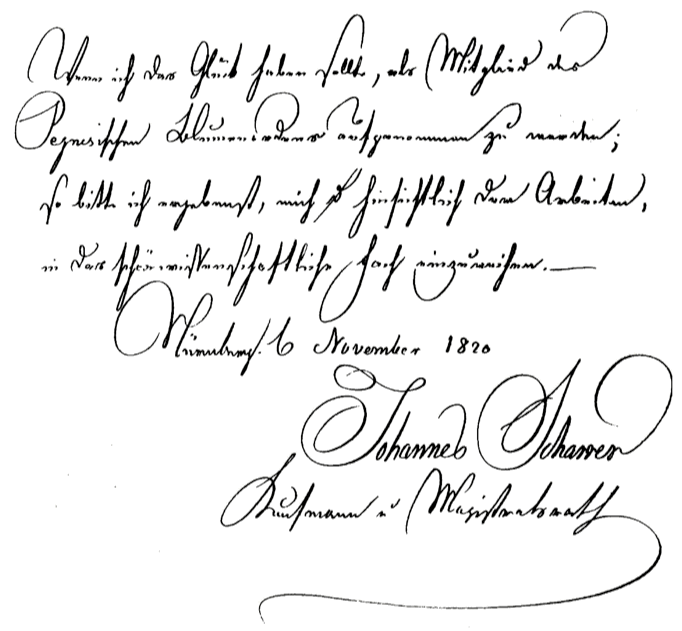 Wenn ich das Glück haben sollte, als Mitglied des
Pegnesischen Blumenordens aufgenommen zu werden;
so bitte ich ergebenst, mich hinsichtlich der Arbeiten,
in das schönwissenschaftliche Fach einzureihen.—
Nürnberg. 6 November 1820
Johannes Scharrer
Kaufmann u Magistratsrath